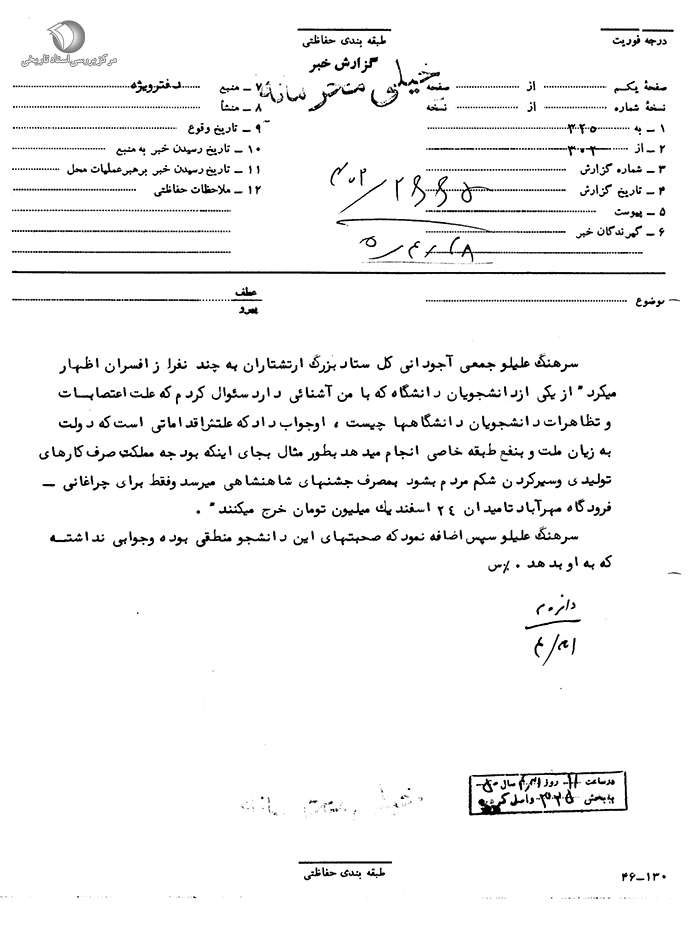 مرکز بررسی اسناد تاریخی
درجه فوریت
طبقه بندی حفاظتی
گزارش خبر
خیلی محرمانه
صفحهٔ یکم از صفحه
نسخهٔ شماره از نسخه
۱ ــ به ۳۲۵
۲ ــ از ۳۰۲
۳ ــ شماره گزارش
۴ ــ تاریخ گزارش
۵ ــ پیوست
۶ ــ گیرندگان خبر
۷ ــ منبع دفترویژه
۸ ــ منشأ
۹ ــ تاریخ وقوع
۱۰ ــ تاریخ رسیدن خبر به منبع
۱۱ ــ تاریخ رسیدن خبر برهبرعملیات محل
۱۲ ــ ملاحظات حفاظتی
موضوع
عطف
پیرو
سرهنگ علیلو جمعی آجودانی کل ستاد بزرگ ارتشتاران به چند نفرا ز افسران اظهار
میکرد " از یکی ازدانشجویان دانشگاه که با من آشنائی دارد سئوال کردم که علت اعتصابات
و تظاهرات دانشجویان دانشگاهها چیست ، اوجواب داد که علتش اقداماتی است که دولت
به زیان ملت و بنفع طبقه خاصی انجام میدهد بطور مثال بجای اینکه بودجه مملکت صرف کارهای
تولیدی وسیرکردن شکم مردم بشود بمصرف جشنهای شاهنشاهی میرسد وفقط برای چراغانی ــ
فرودگاه مهرآباد تامیدان ۲۴ اسفند یك میلیون تومان خرج میکنند " .
سرهنگ علیلو سپس اضافه نمود که صحبتهای این دانشجو منطقی بوده وجوابی نداشتـه
که به او بدهد .
درساعت روز سال
به بخش ۳۲۵ واصل گردید
طبقه بندی حفاظتی
۴۶ــ۱۳۰